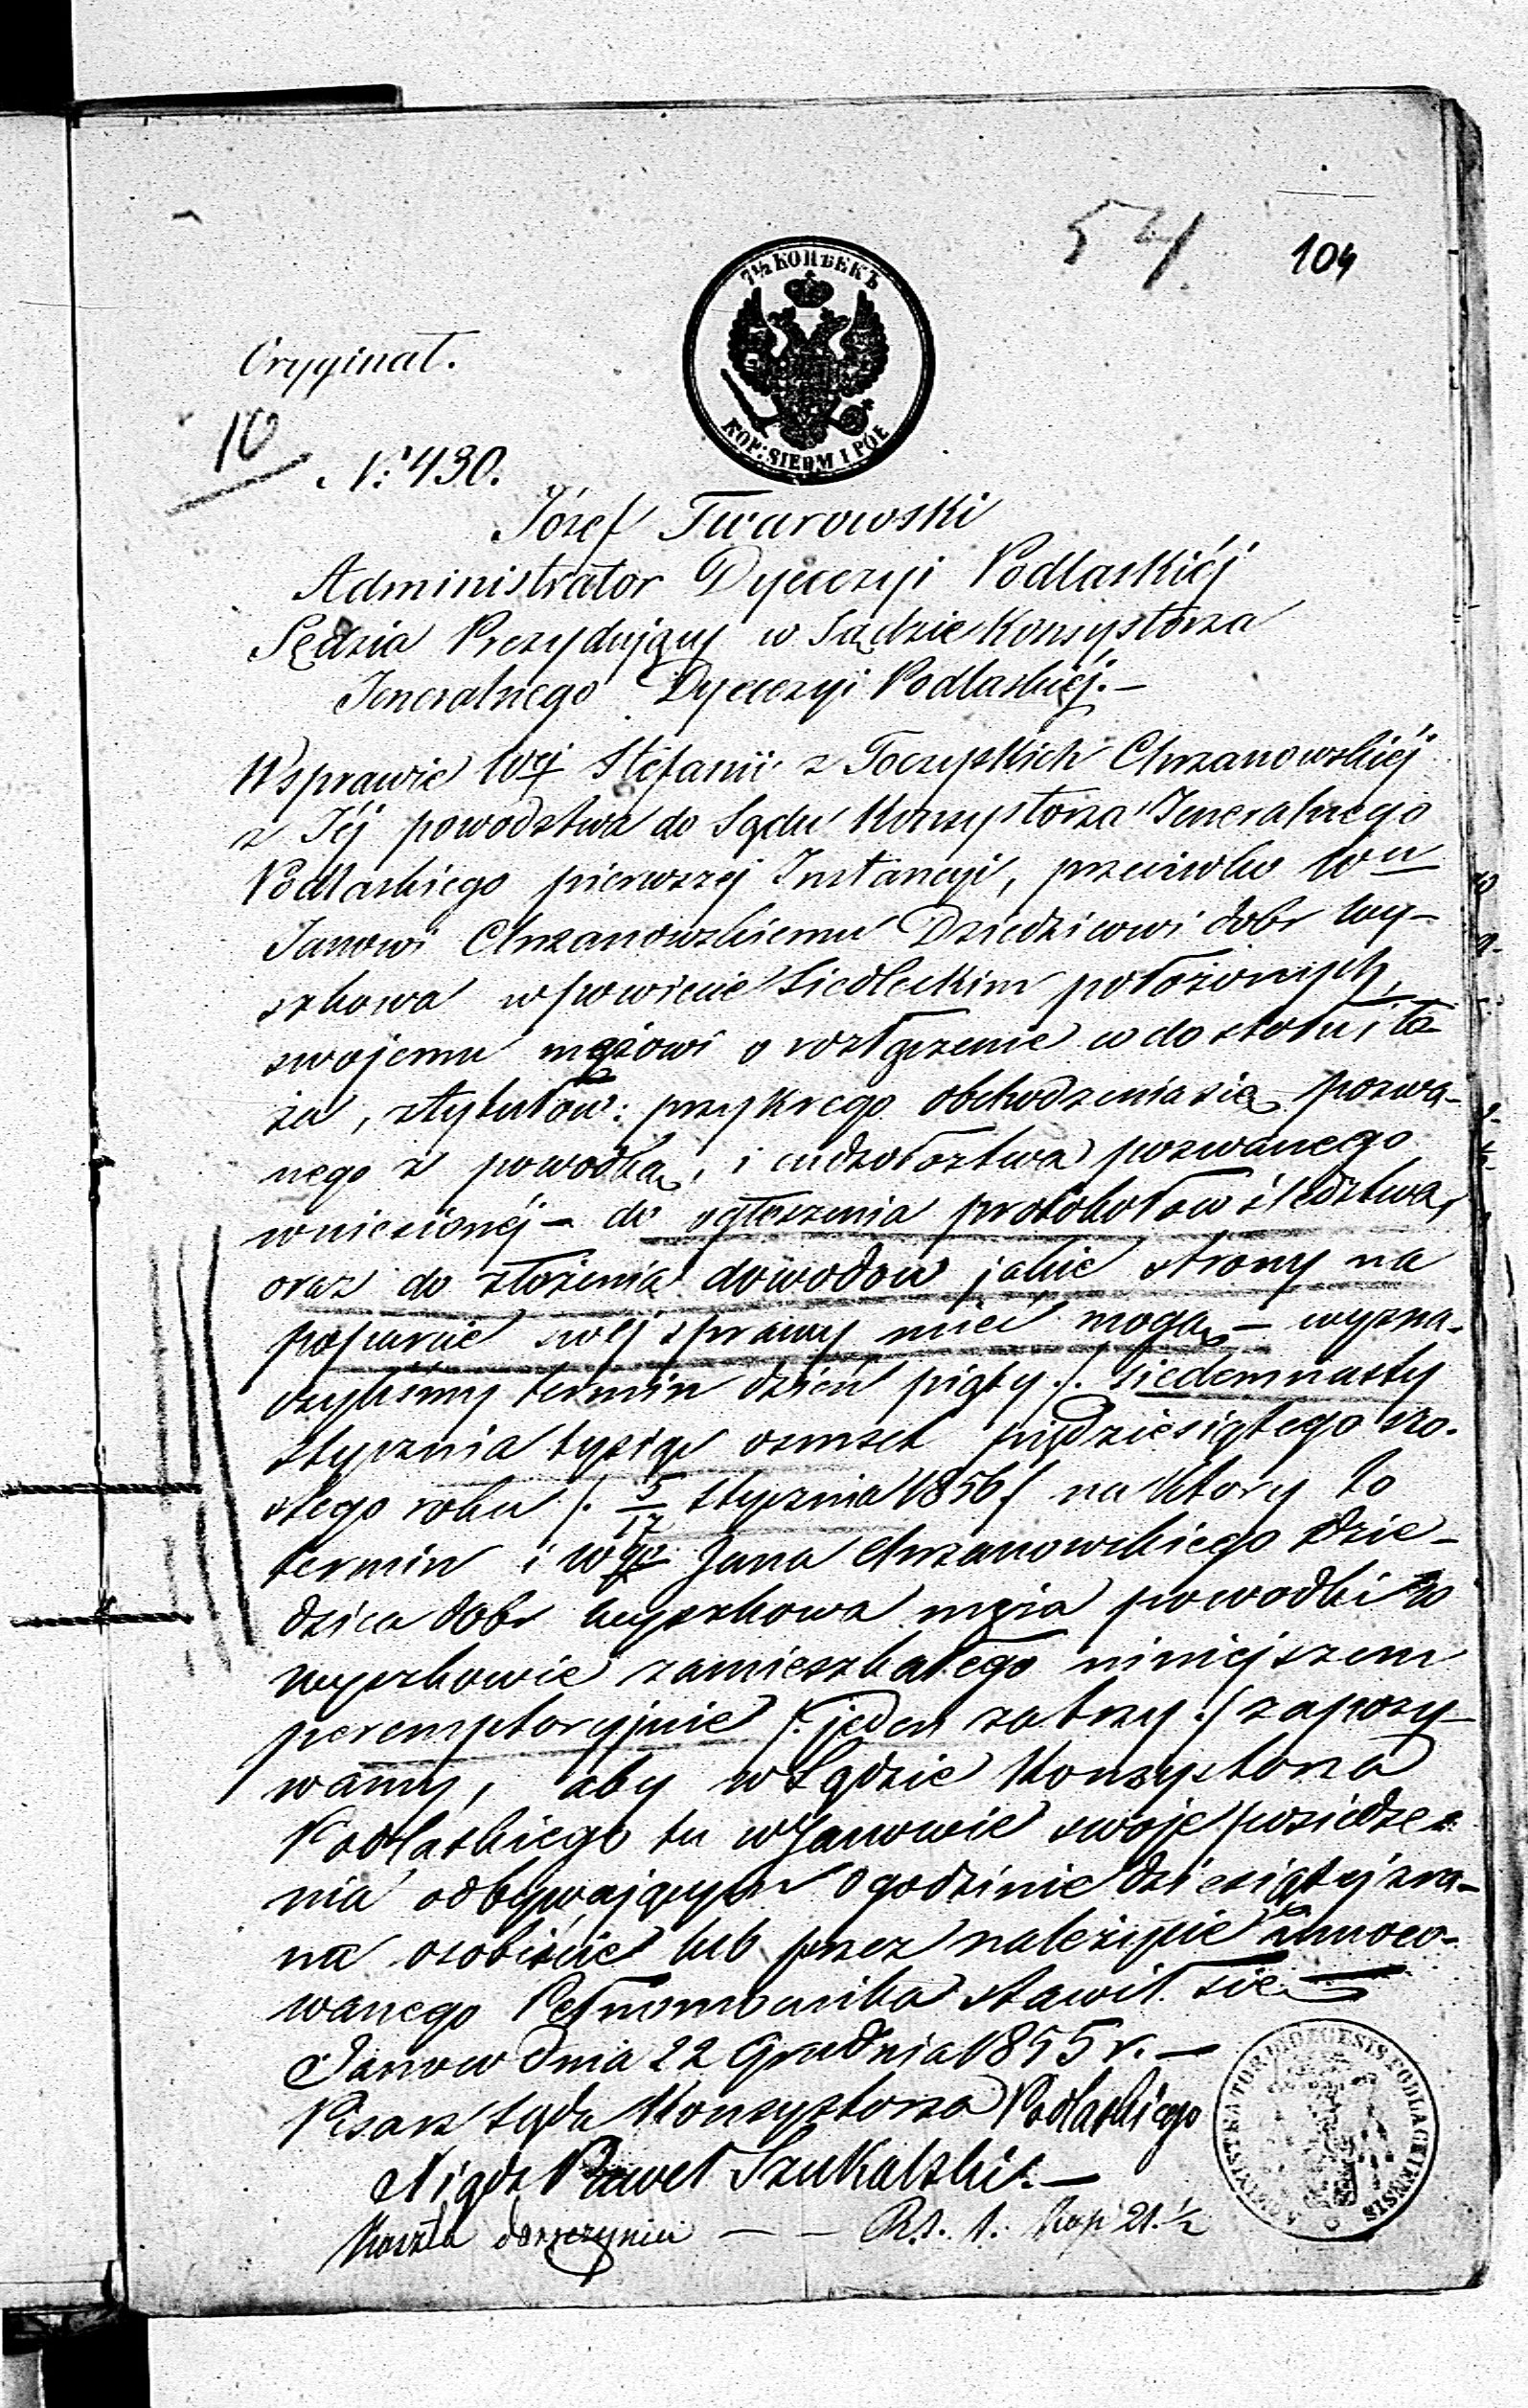 54.
104
7½ КОПѢЕКЪ
KOP: SIEDM I PÓŁ
Oryginał.
10
N: 430.
Józef Twarowski
Administrator Dyecezyi Podlaskiéj
Sędzia Prezydujący w Sądzie Konsystorza
Jeneralnego Dyecezyi Podlaskiéj.—
W sprawie Wéj Stefanii z Toczyskich Chrzanowskiéj
z Jéj powodztwa do Sądu Konsystorza Jeneralnego
Podlaskiego pierwszej Instancyi, przeciwko Wu
Janowi Chrzanowskiemu Dziedzicowi dobr Wy-
szkowa w powiecie Siedleckim położonych,
swojemu mężowi o rozłączenie co do stołu i ło-
ża, z tytułów: przykrego obchodzenia się pozwa-
nego z powodką, i cudzołoztwa pozwanego
wniesionéj — do ogłoszenia protokołów śledztwa,
oraz do złożenia dowodow jakie strony na
poparcie swéj sprawy mieć mogą — wyzna-
czyliśmy termin dzień piąty /. siedemnasty
stycznia tysiąc osmset pięдziesiątego szo-
stego roku /. 5/17 stycznia 1856 / na który to
termin i Wgo Jana Chrzanowskiego Dzie-
dzica dobr Wyszkowa męża powodki w
Wyszkowie zamieszkałego niniejszem
peremptoryjnie /: jeden za trzy :/ zapozy-
wamy, aby w Sądzie Konsystorza
Podlaskiego tu w Janowie swoje posiedze-
nia odbywającym o godzinie dziesiątej zra-
na osobiście lub przez należycie umoco-
wanego Pełnomocnika stawił się —
Janow dnia 22 Grudnia 1855 r. —
Pisarz Sądu Konsystorza Podlaskiego
Xiądz Paweł Szukalski. —
Koszta doręczenia — — Rs. 1. Kop 21. ½
ADMINISTRATOR DIOECESIS PODLACHIENSIS